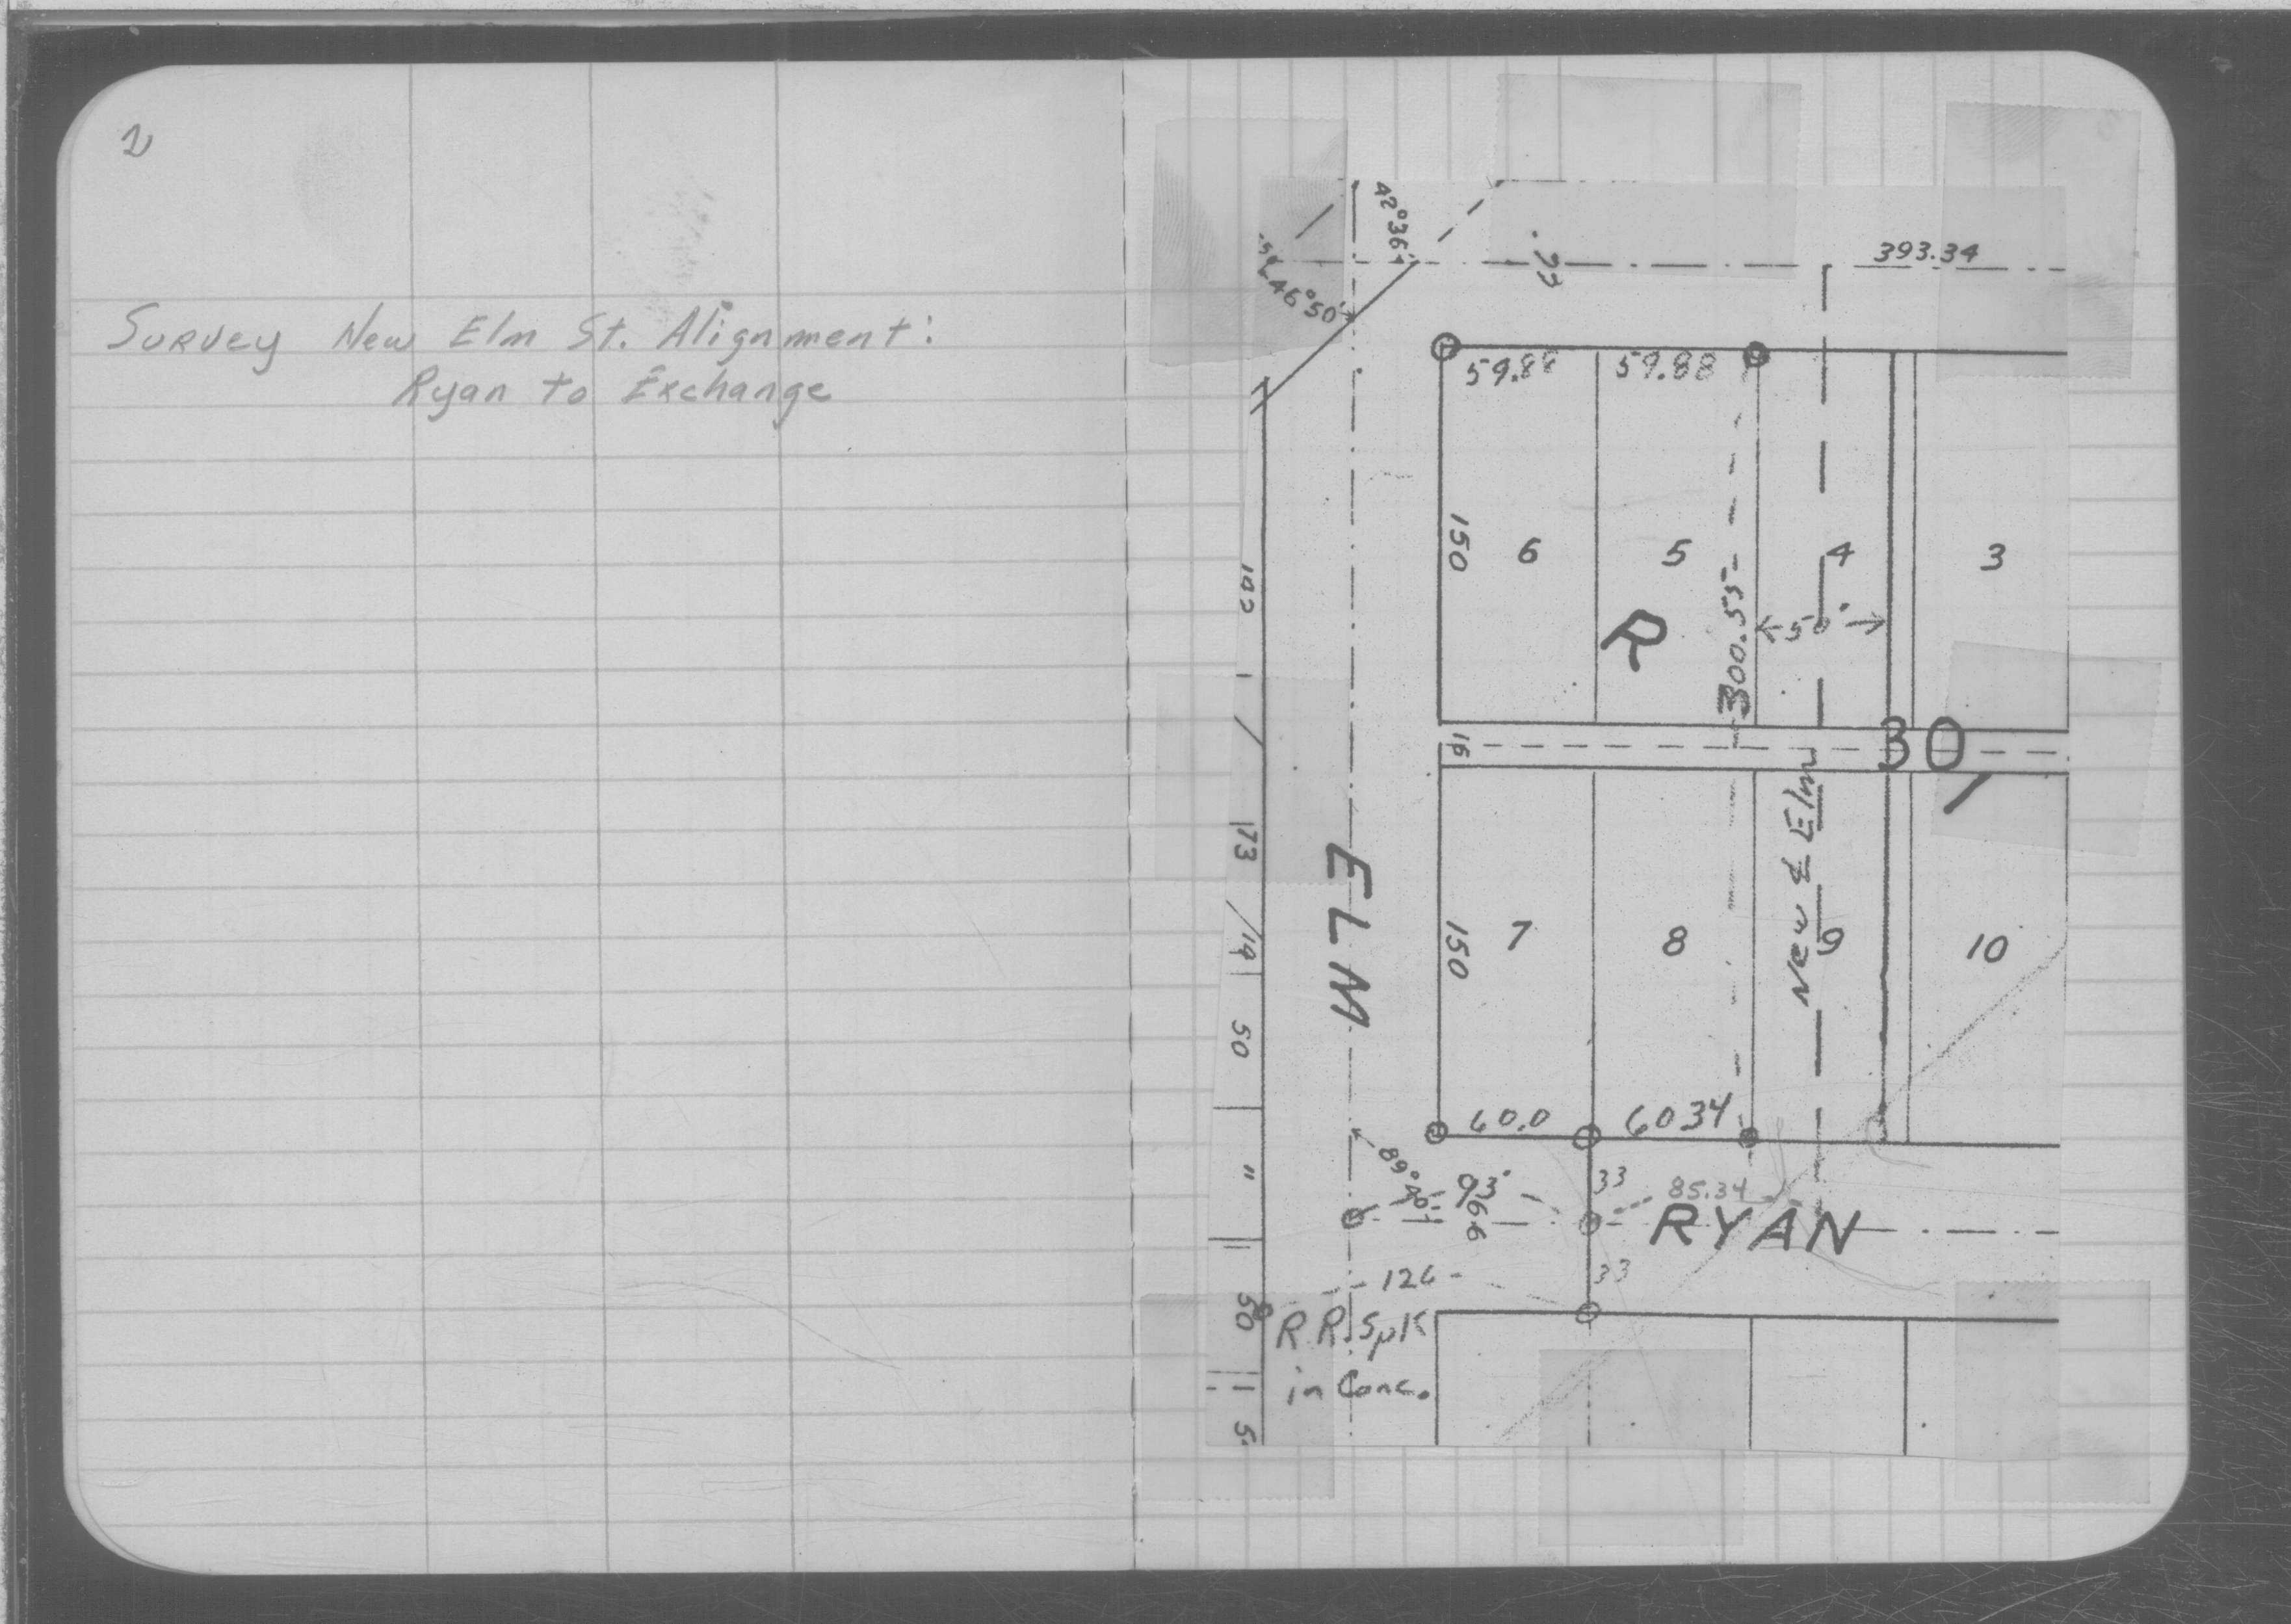 2
Survey New Elm St. Alignment:
Ryan to Exchange
42°36'
46°50'
33
393.34
59.88
59.88
150
6
5
4
3
300.55
50'
R
102
16
30
73
ELM
New ℄ Elm
7
8
9
10
150
/19
50
60.0
60.34
89°40'
93'
96.6
33
85.34
RYAN
"
126
33
50
R.R. Spk
in Conc.